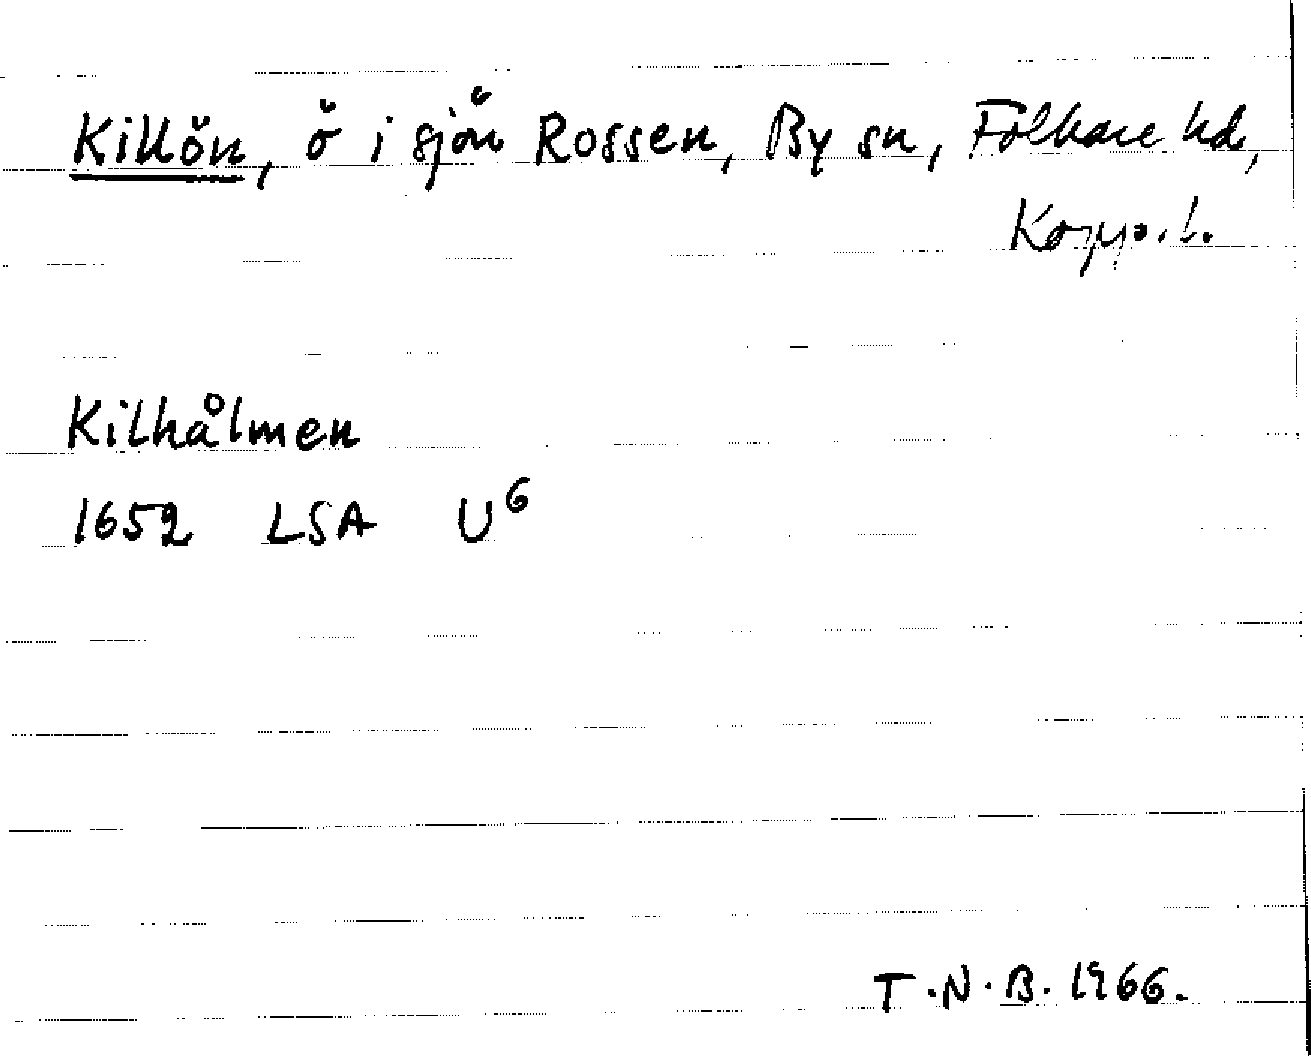 Killön, ö i sjön Rossen, By sn, Folkare hd,
Kopp. l.
Kilhålmen
1652 LSA U6
T.N.B. 1966.